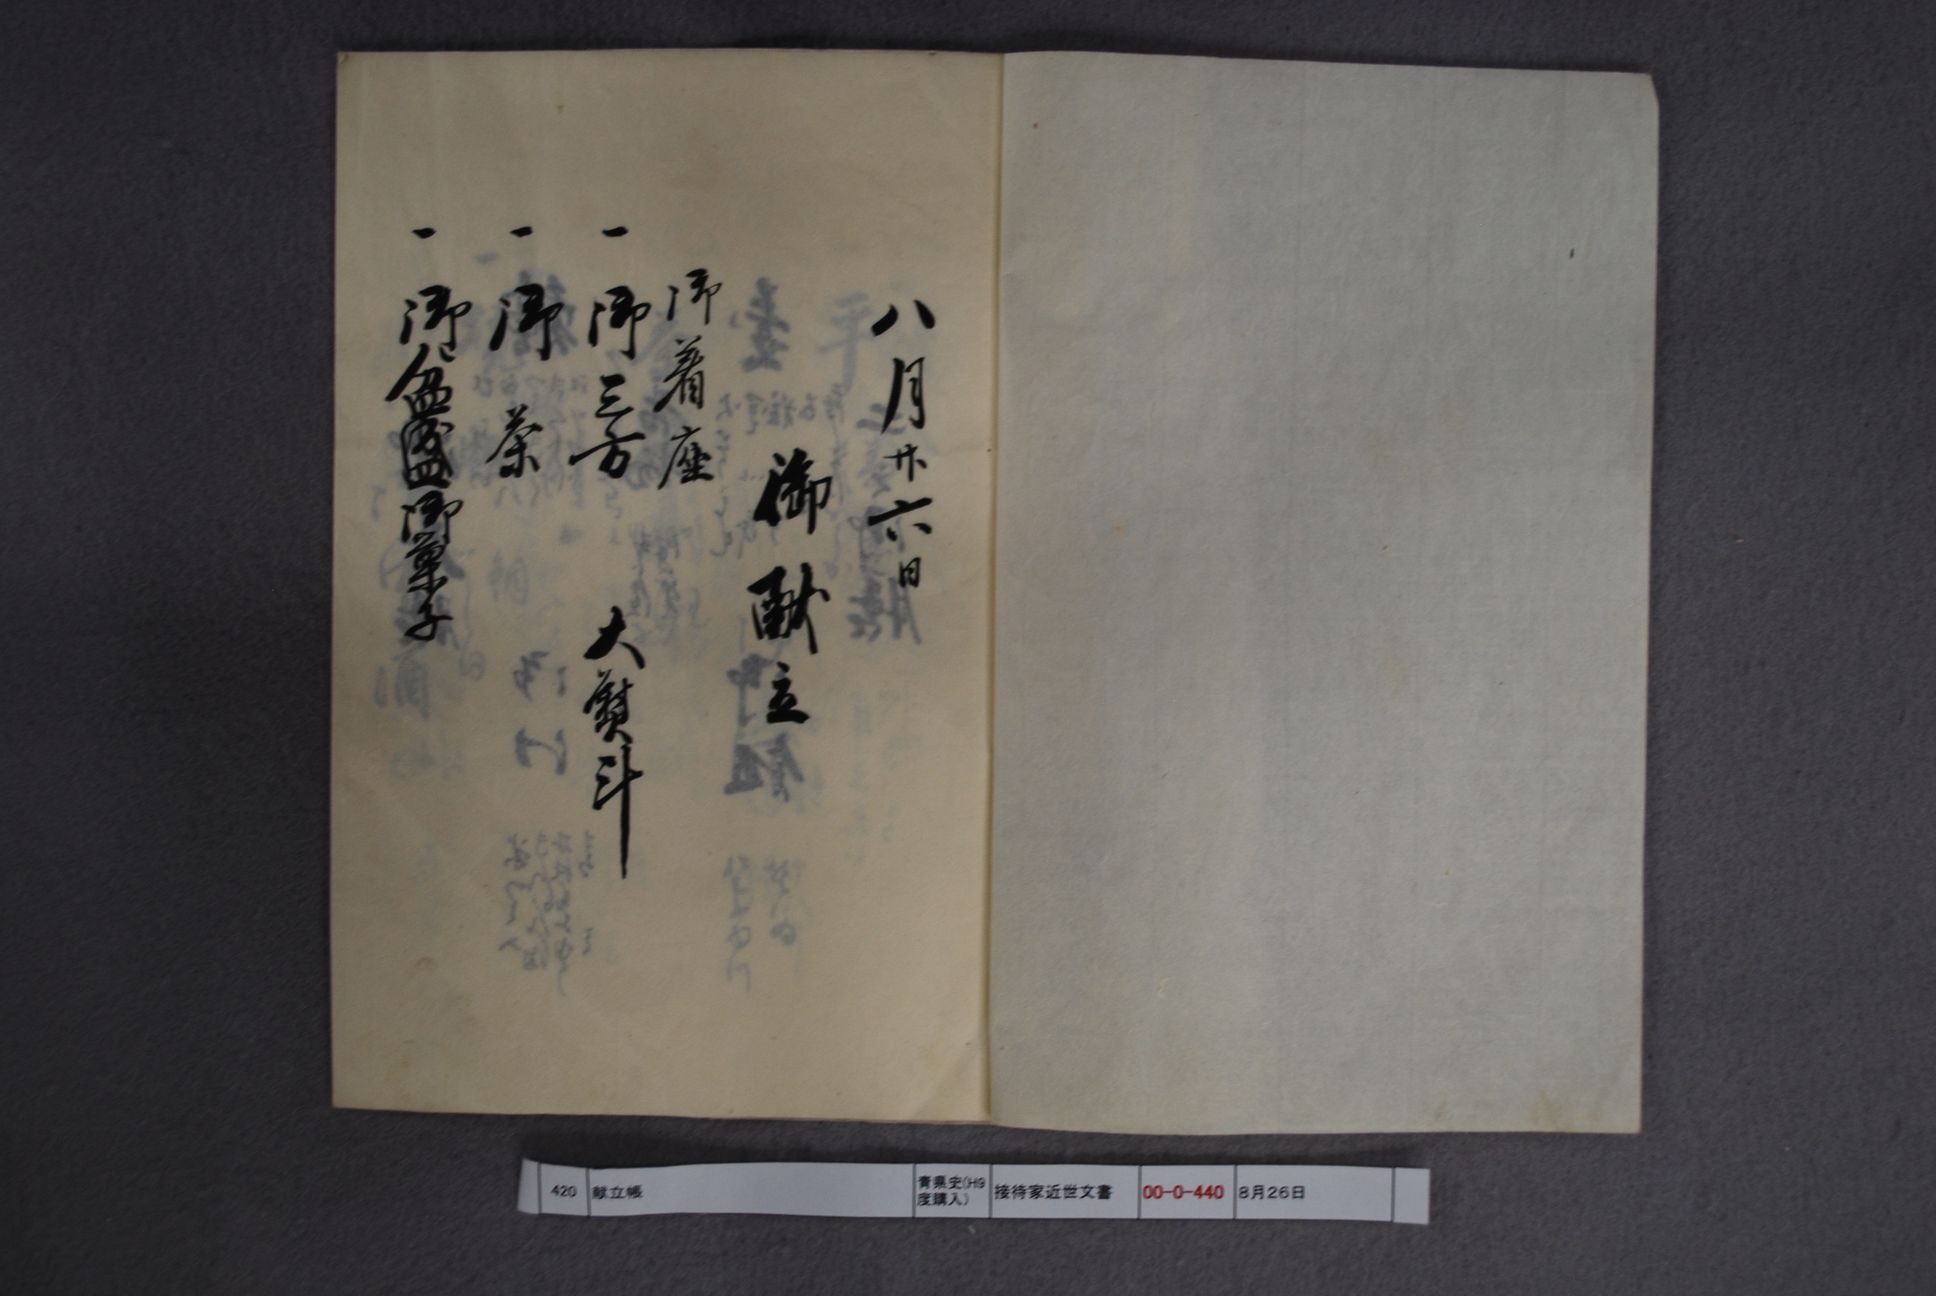 八月廿六日
御献立
御着座
一 御三方 大熨斗
一 御茶
一 御盆盛御菓子
420 献立帳 青県史(H9度購入) 接待家近世文書 00-0-440 8月26日